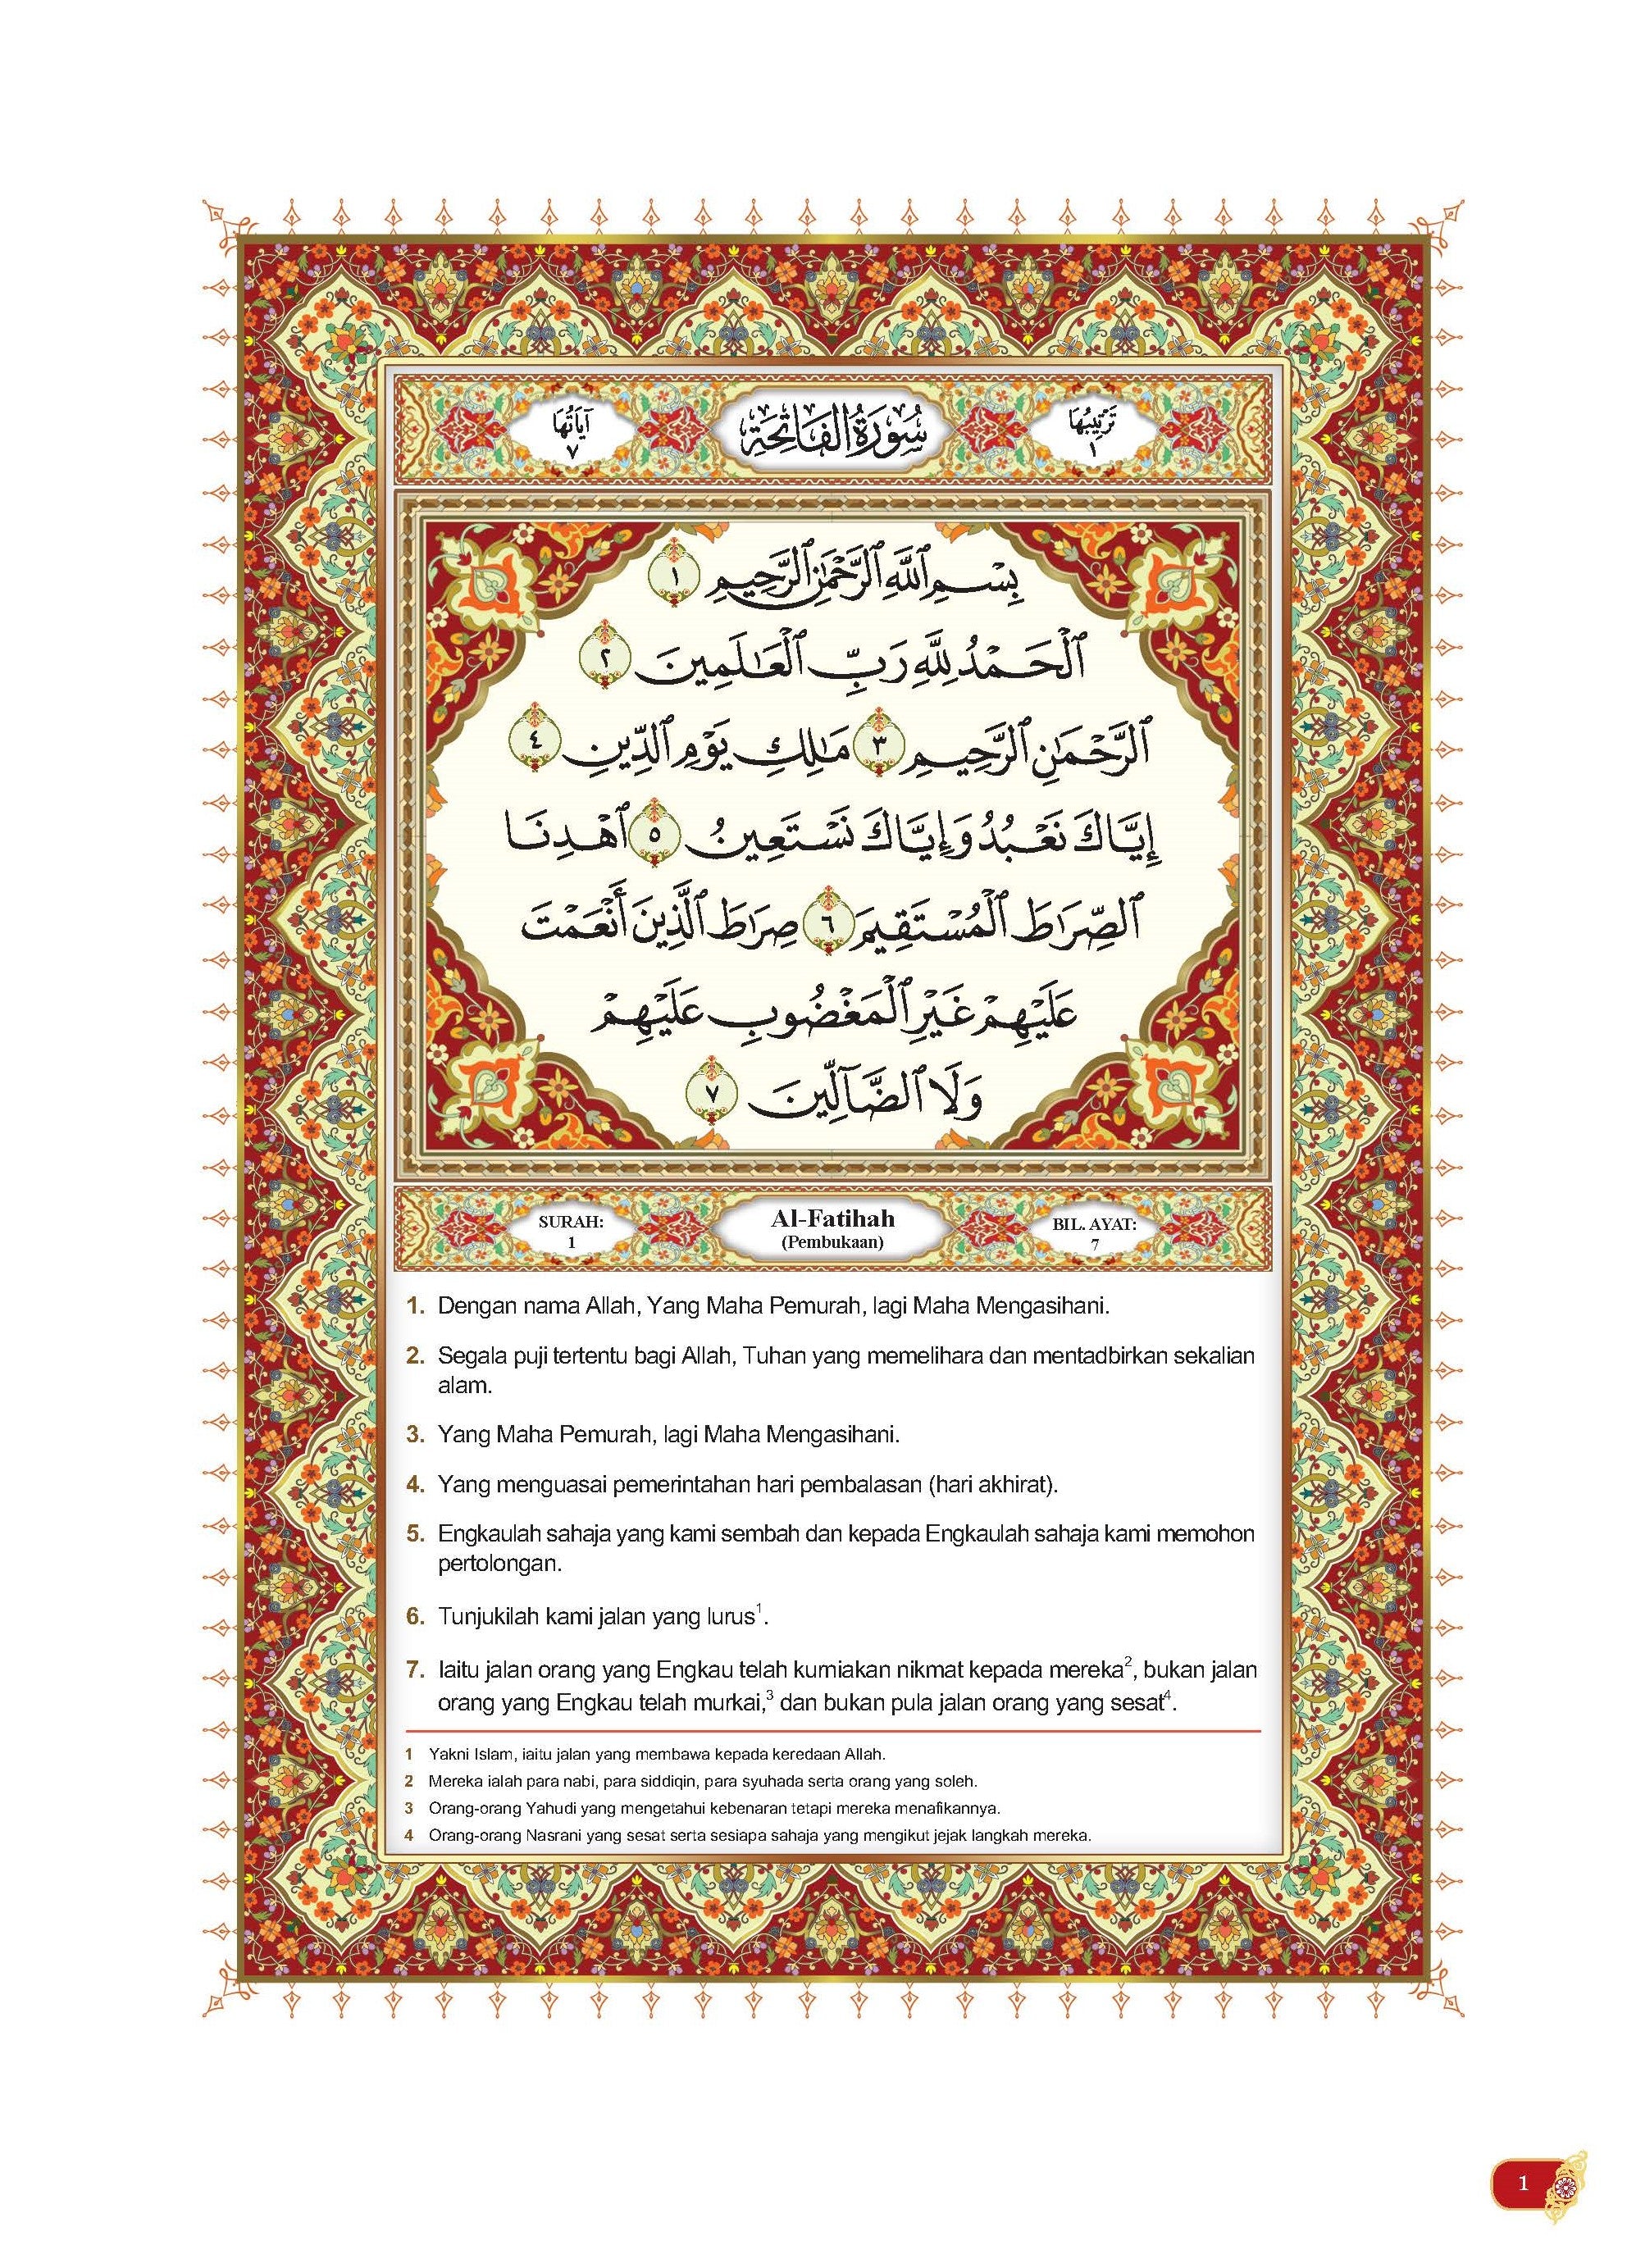 تَرْتِيبُهَا ١ سُورَةُ الفَاتِحَةِ آيَاتُهَا ٧
بِسْمِ ٱللَّهِ ٱلرَّحْمَٰنِ ٱلرَّحِيمِ ١
ٱلْحَمْدُ لِلَّهِ رَبِّ ٱلْعَٰلَمِينَ ٢
ٱلرَّحْمَٰنِ ٱلرَّحِيمِ ٣ مَٰلِكِ يَوْمِ ٱلدِّينِ ٤
إِيَّاكَ نَعْبُدُ وَإِيَّاكَ نَسْتَعِينُ ٥ ٱهْدِنَا
ٱلصِّرَٰطَ ٱلْمُسْتَقِيمَ ٦ صِرَٰطَ ٱلَّذِينَ أَنْعَمْتَ
عَلَيْهِمْ غَيْرِ ٱلْمَغْضُوبِ عَلَيْهِمْ
وَلَا ٱلضَّآلِّينَ ٧
SURAH: 1 Al-Fatihah (Pembukaan) BIL. AYAT: 7
1. Dengan nama Allah, Yang Maha Pemurah, lagi Maha Mengasihani.
2. Segala puji tertentu bagi Allah, Tuhan yang memelihara dan mentadbirkan sekalian
alam.
3. Yang Maha Pemurah, lagi Maha Mengasihani.
4. Yang menguasai pemerintahan hari pembalasan (hari akhirat).
5. Engkaulah sahaja yang kami sembah dan kepada Engkaulah sahaja kami memohon
pertolongan.
6. Tunjukilah kami jalan yang lurus¹.
7. Iaitu jalan orang yang Engkau telah kurniakan nikmat kepada mereka², bukan jalan
orang yang Engkau telah murkai,³ dan bukan pula jalan orang yang sesat⁴.
1 Yakni Islam, iaitu jalan yang membawa kepada keredaan Allah.
2 Mereka ialah para nabi, para siddiqin, para syuhada serta orang yang soleh.
3 Orang-orang Yahudi yang mengetahui kebenaran tetapi mereka menafikannya.
4 Orang-orang Nasrani yang sesat serta sesiapa sahaja yang mengikut jejak langkah mereka.
1